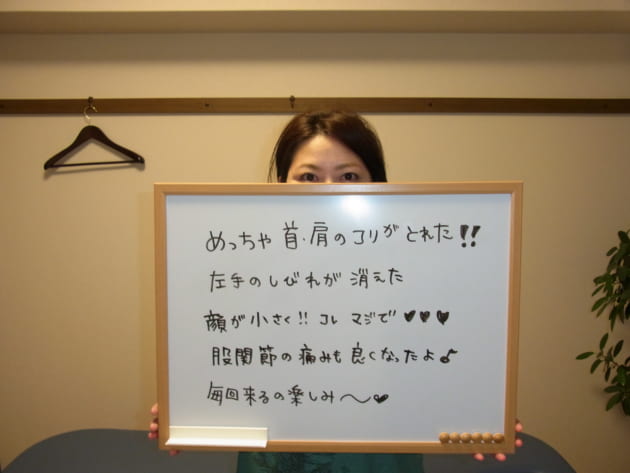 めっちゃ 首・肩のコリがとれた!!
左手のしびれが 消えた
顔が小さく!! コレ マジで ♥♥♥
股関節の痛みも 良くなったよ♪
毎回来るの楽しみ〜♥